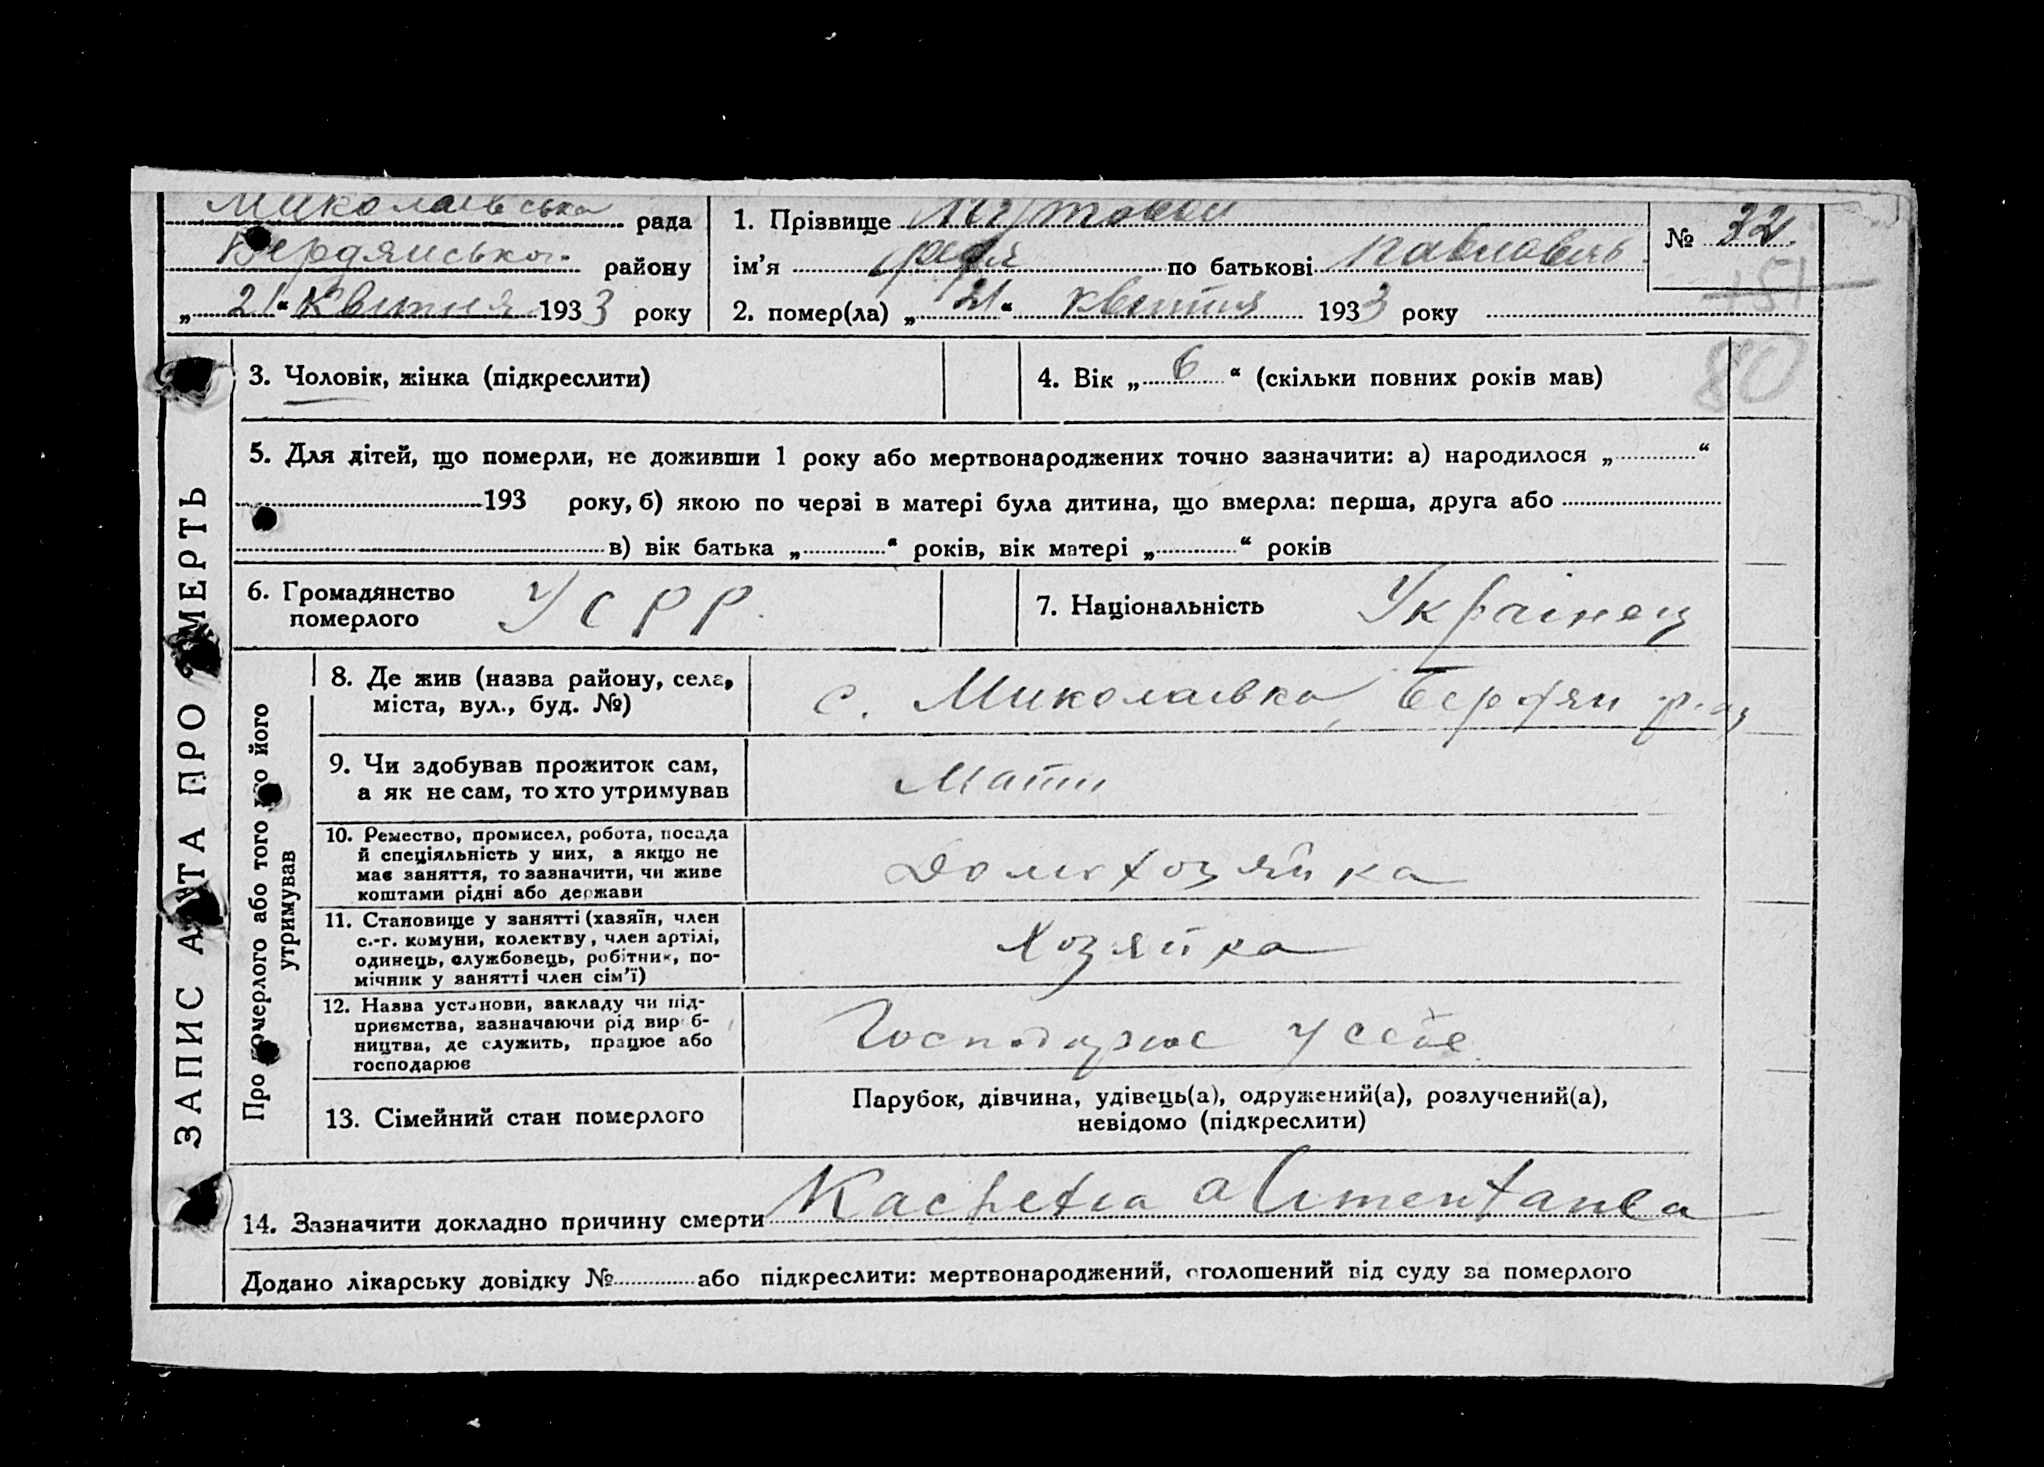 Миколаївська рада
Бердянськ. району
„ 21 “ Квітня 1933 року
1. Прізвище
ім’я по батькові Павлович
2. помер(ла) „ 21 “ квітня 1933 року
№ 32.
151
80
ЗАПИС АКТА ПРО СМЕРТЬ
3. Чоловік, жінка (підкреслити)
4. Вік „ 6 “ (скільки повних років мав)
5. Для дітей, що померли, не доживши 1 року або мертвонароджених точно зазначити: а) народилося „ “
193 року, б) якою по черзі в матері була дитина, що вмерла: перша, друга або
в) вік батька „ “ років, вік матері „ “ років
6. Громадянство
померлого
УСРР.
7. Національність Українец
Про померлого або того хто його
утримував
8. Де жив (назва району, села,
міста, вул., буд. №)
с. Миколаївка, Бердян р-ну
9. Чи здобував прожиток сам,
а як не сам, то хто утримував
Мати
10. Ремество, промисел, робота, посада
й спеціяльність у них, а якщо не
має заняття, то зазначити, чи живе
коштами рідні або держави
Домохозяйка
11. Становище у занятті (хазяїн, член
с.-г. комуни, колектву, член артілі,
одинець, службовець, робітник, по-
мічник у занятті член сім’ї)
Хозяйка
12. Назва установи, закладу чи під-
приємства, зазначаючи рід вироб-
ництва, де служить, працює або
господарює
Господарює у себе
13. Сімейний стан померлого
Парубок, дівчина, удівець(а), одружений(а), розлучений(а),
невідомо (підкреслити)
14. Зазначити докладно причину смерти Kachexia alimentarea
Додано лікарську довідку № або підкреслити: мертвонароджений, оголошений від суду за померлого